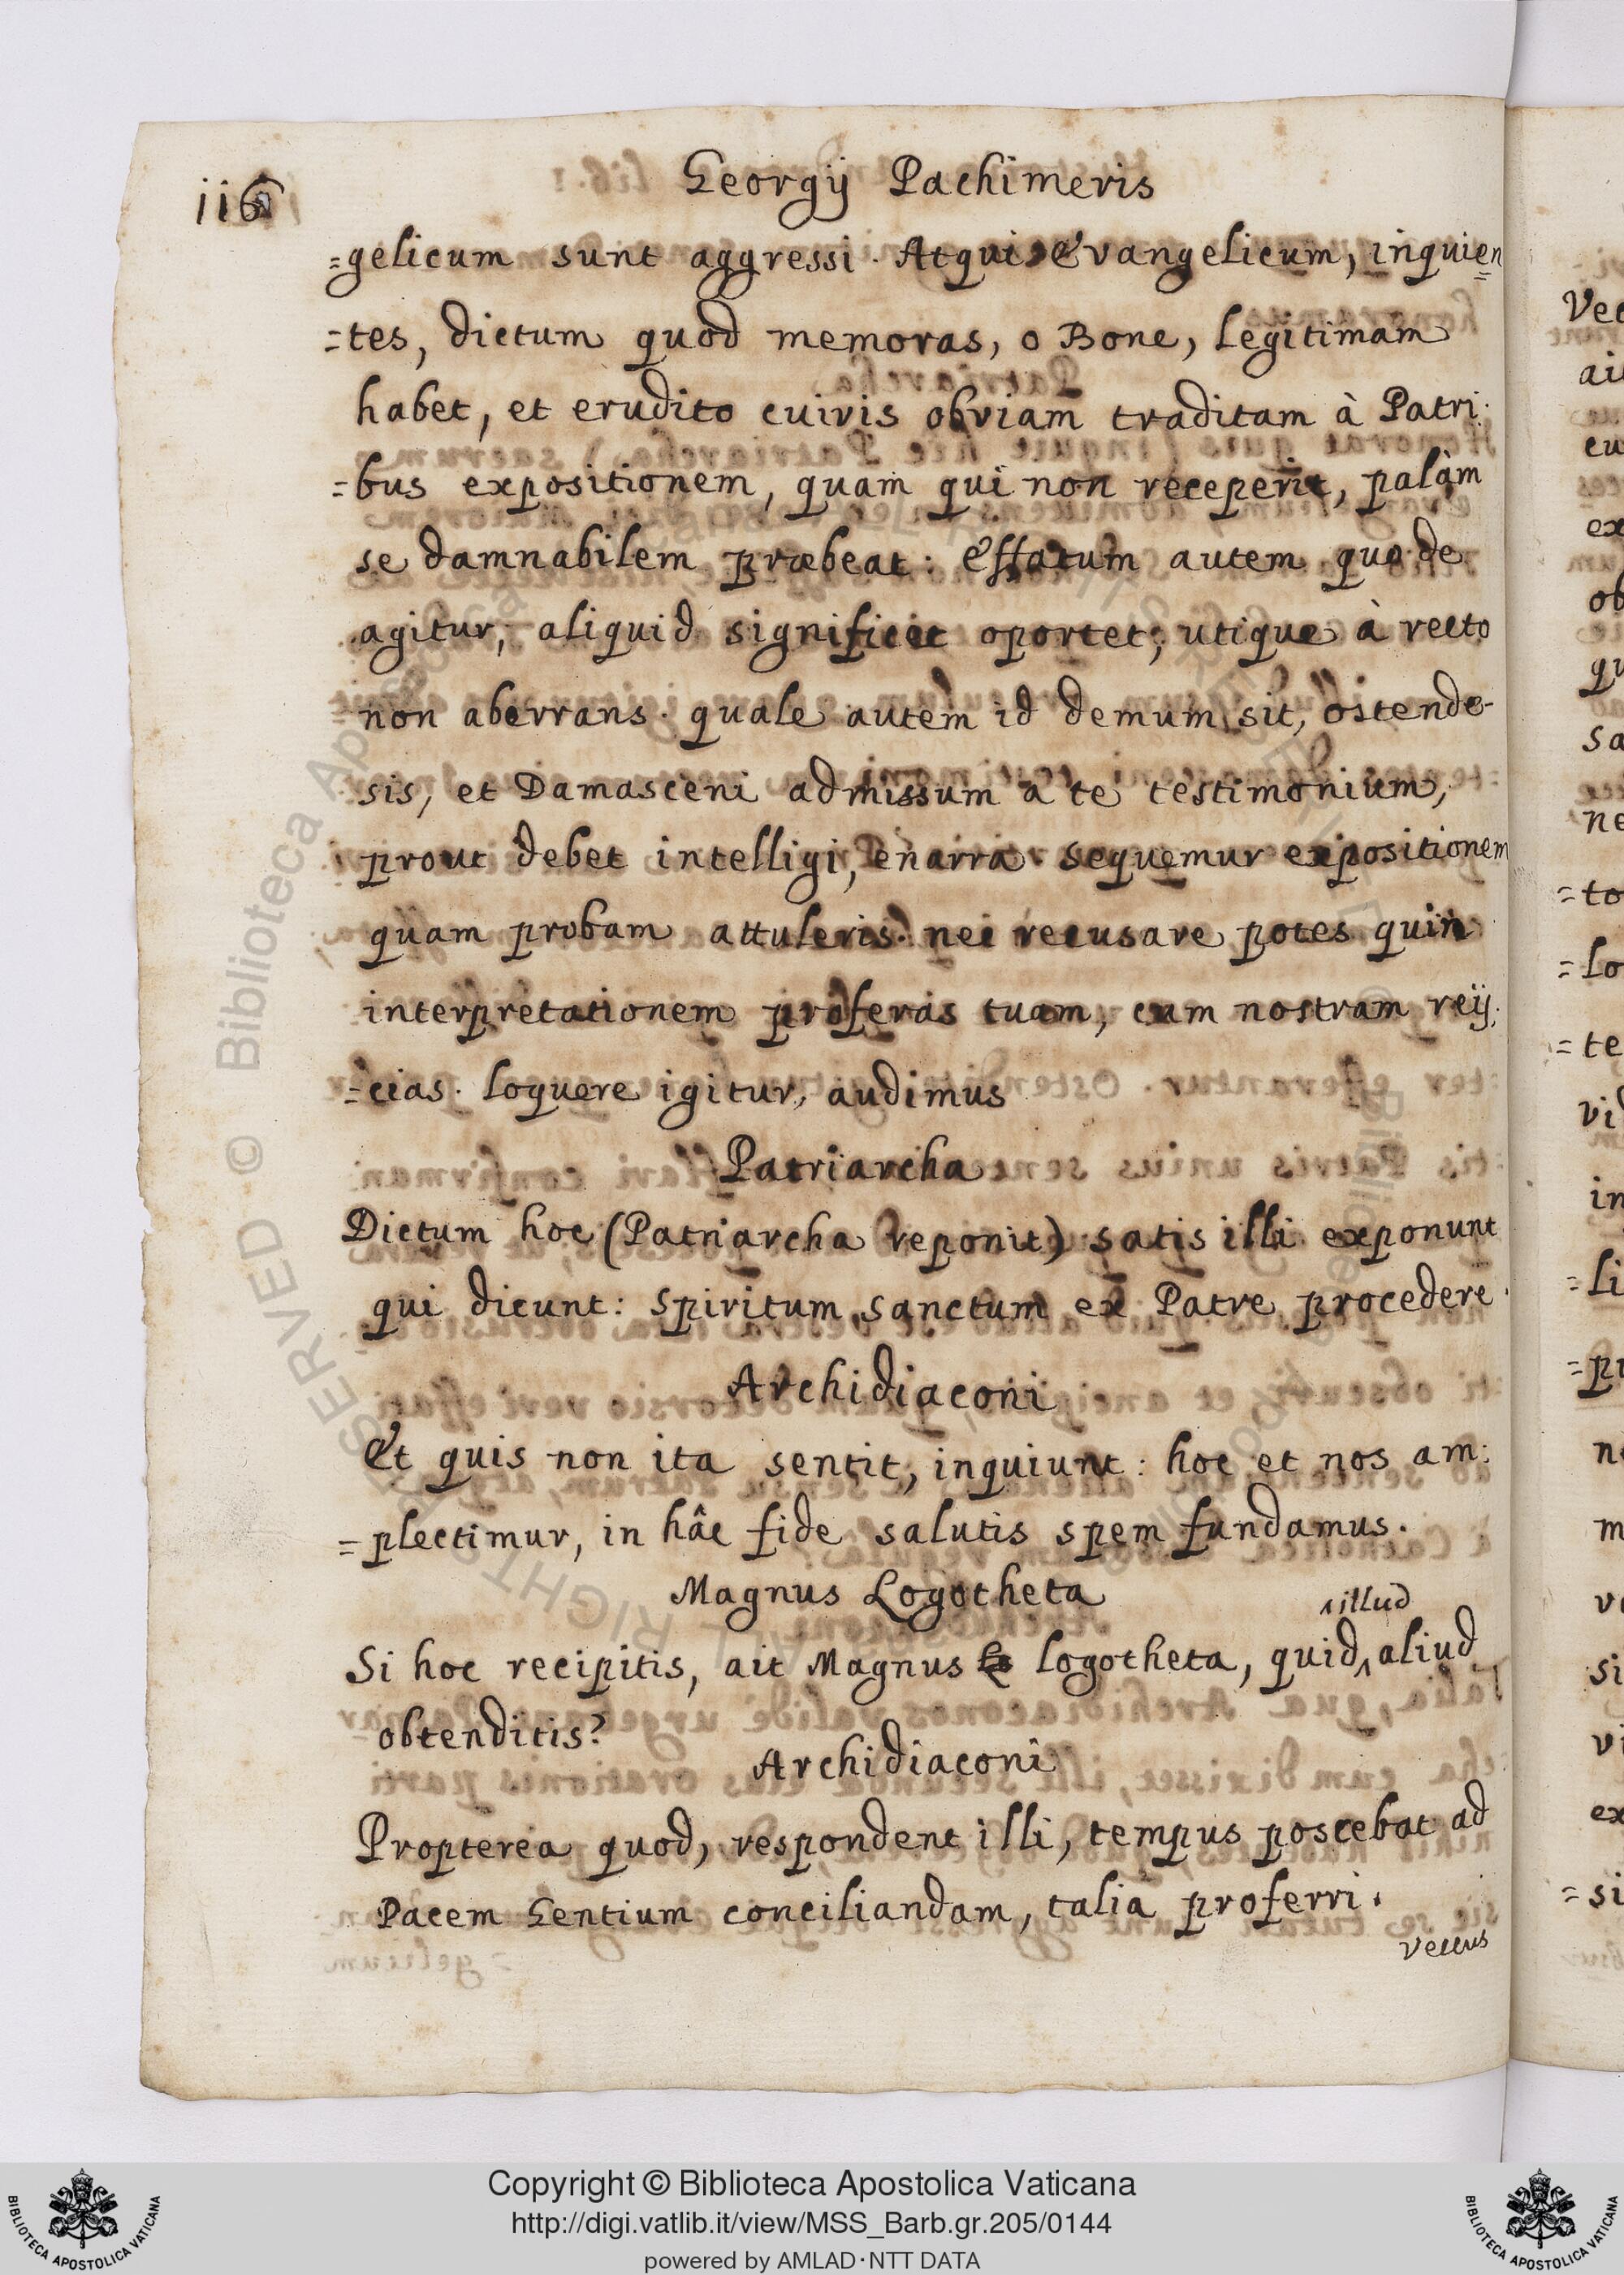 116
Georgij Pachimeris
=gelicum sunt aggressi. Atqui evangelicum, inquien
=tes, dictum quod memoras, o Bone, legitimam
habet, et erudito cuivis obviam traditam à Patri:
=bus expositionem, quam qui non receperit, palàm
se damnabilem præbeat: effatum autem quo de
agitur, aliquid significet oportet, utique à recto
non aberrans. quale autem id demum sit, ostende-
sis, et Damasceni admissum a te testimonium,
prout debet intelligi, enarra. sequemur expositionem
quam probam attuleris. nec recusare potes quin
interpretationem proferas tuam, cum nostram reij:
=cias. loquere igitur, audimus
Patriarcha
Dictum hoc (Patriarcha reponit) satis illi exponunt
qui dicunt: Spiritum sanctum ex Patre procedere.
Archidiaconi
Et quis non ita sentit, inquiunt: hoc et nos am:
=plectimur, in hâc fide salutis spem fundamus.
Magnus Logotheta
illud
Si hoc recipitis, ait Magnus Logotheta, quid aliud
obtenditis?
Archidiaconi
Propterea quod, respondent illi, tempus poscebat ad
Pacem Gentium conciliandam, talia proferri.
Veccus
Vec
ai
cu
ex
ob
qu
sa
ne
=to
=lo
=te
vid
in
=li
=pr
ne
m
ve
si
vi
ex
=si
© Biblioteca Apostolica
ALL RIGHTS RESERVED
Copyright © Biblioteca Apostolica Vaticana
http://digi.vatlib.it/view/MSS_Barb.gr.205/0144
powered by AMLAD·NTT DATA
BIBLIOTECA APOSTOLICA VATICANA
BIBLIOTECA APOSTOLICA VATICANA